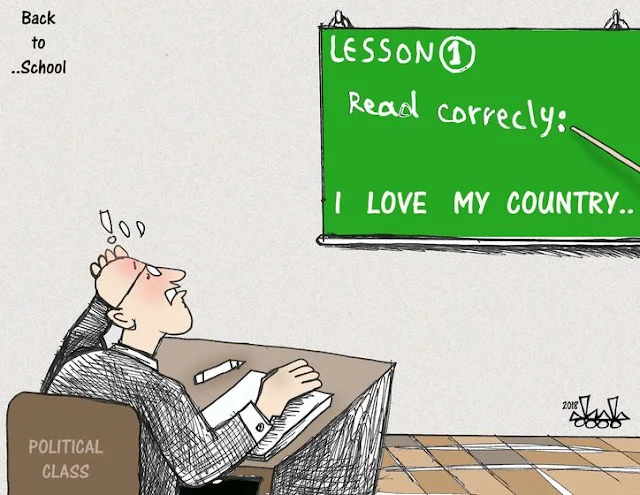 Back
to
..School
LESSON 1
Read correcly:
I LOVE MY COUNTRY..
POLITICAL
CLASS
2018